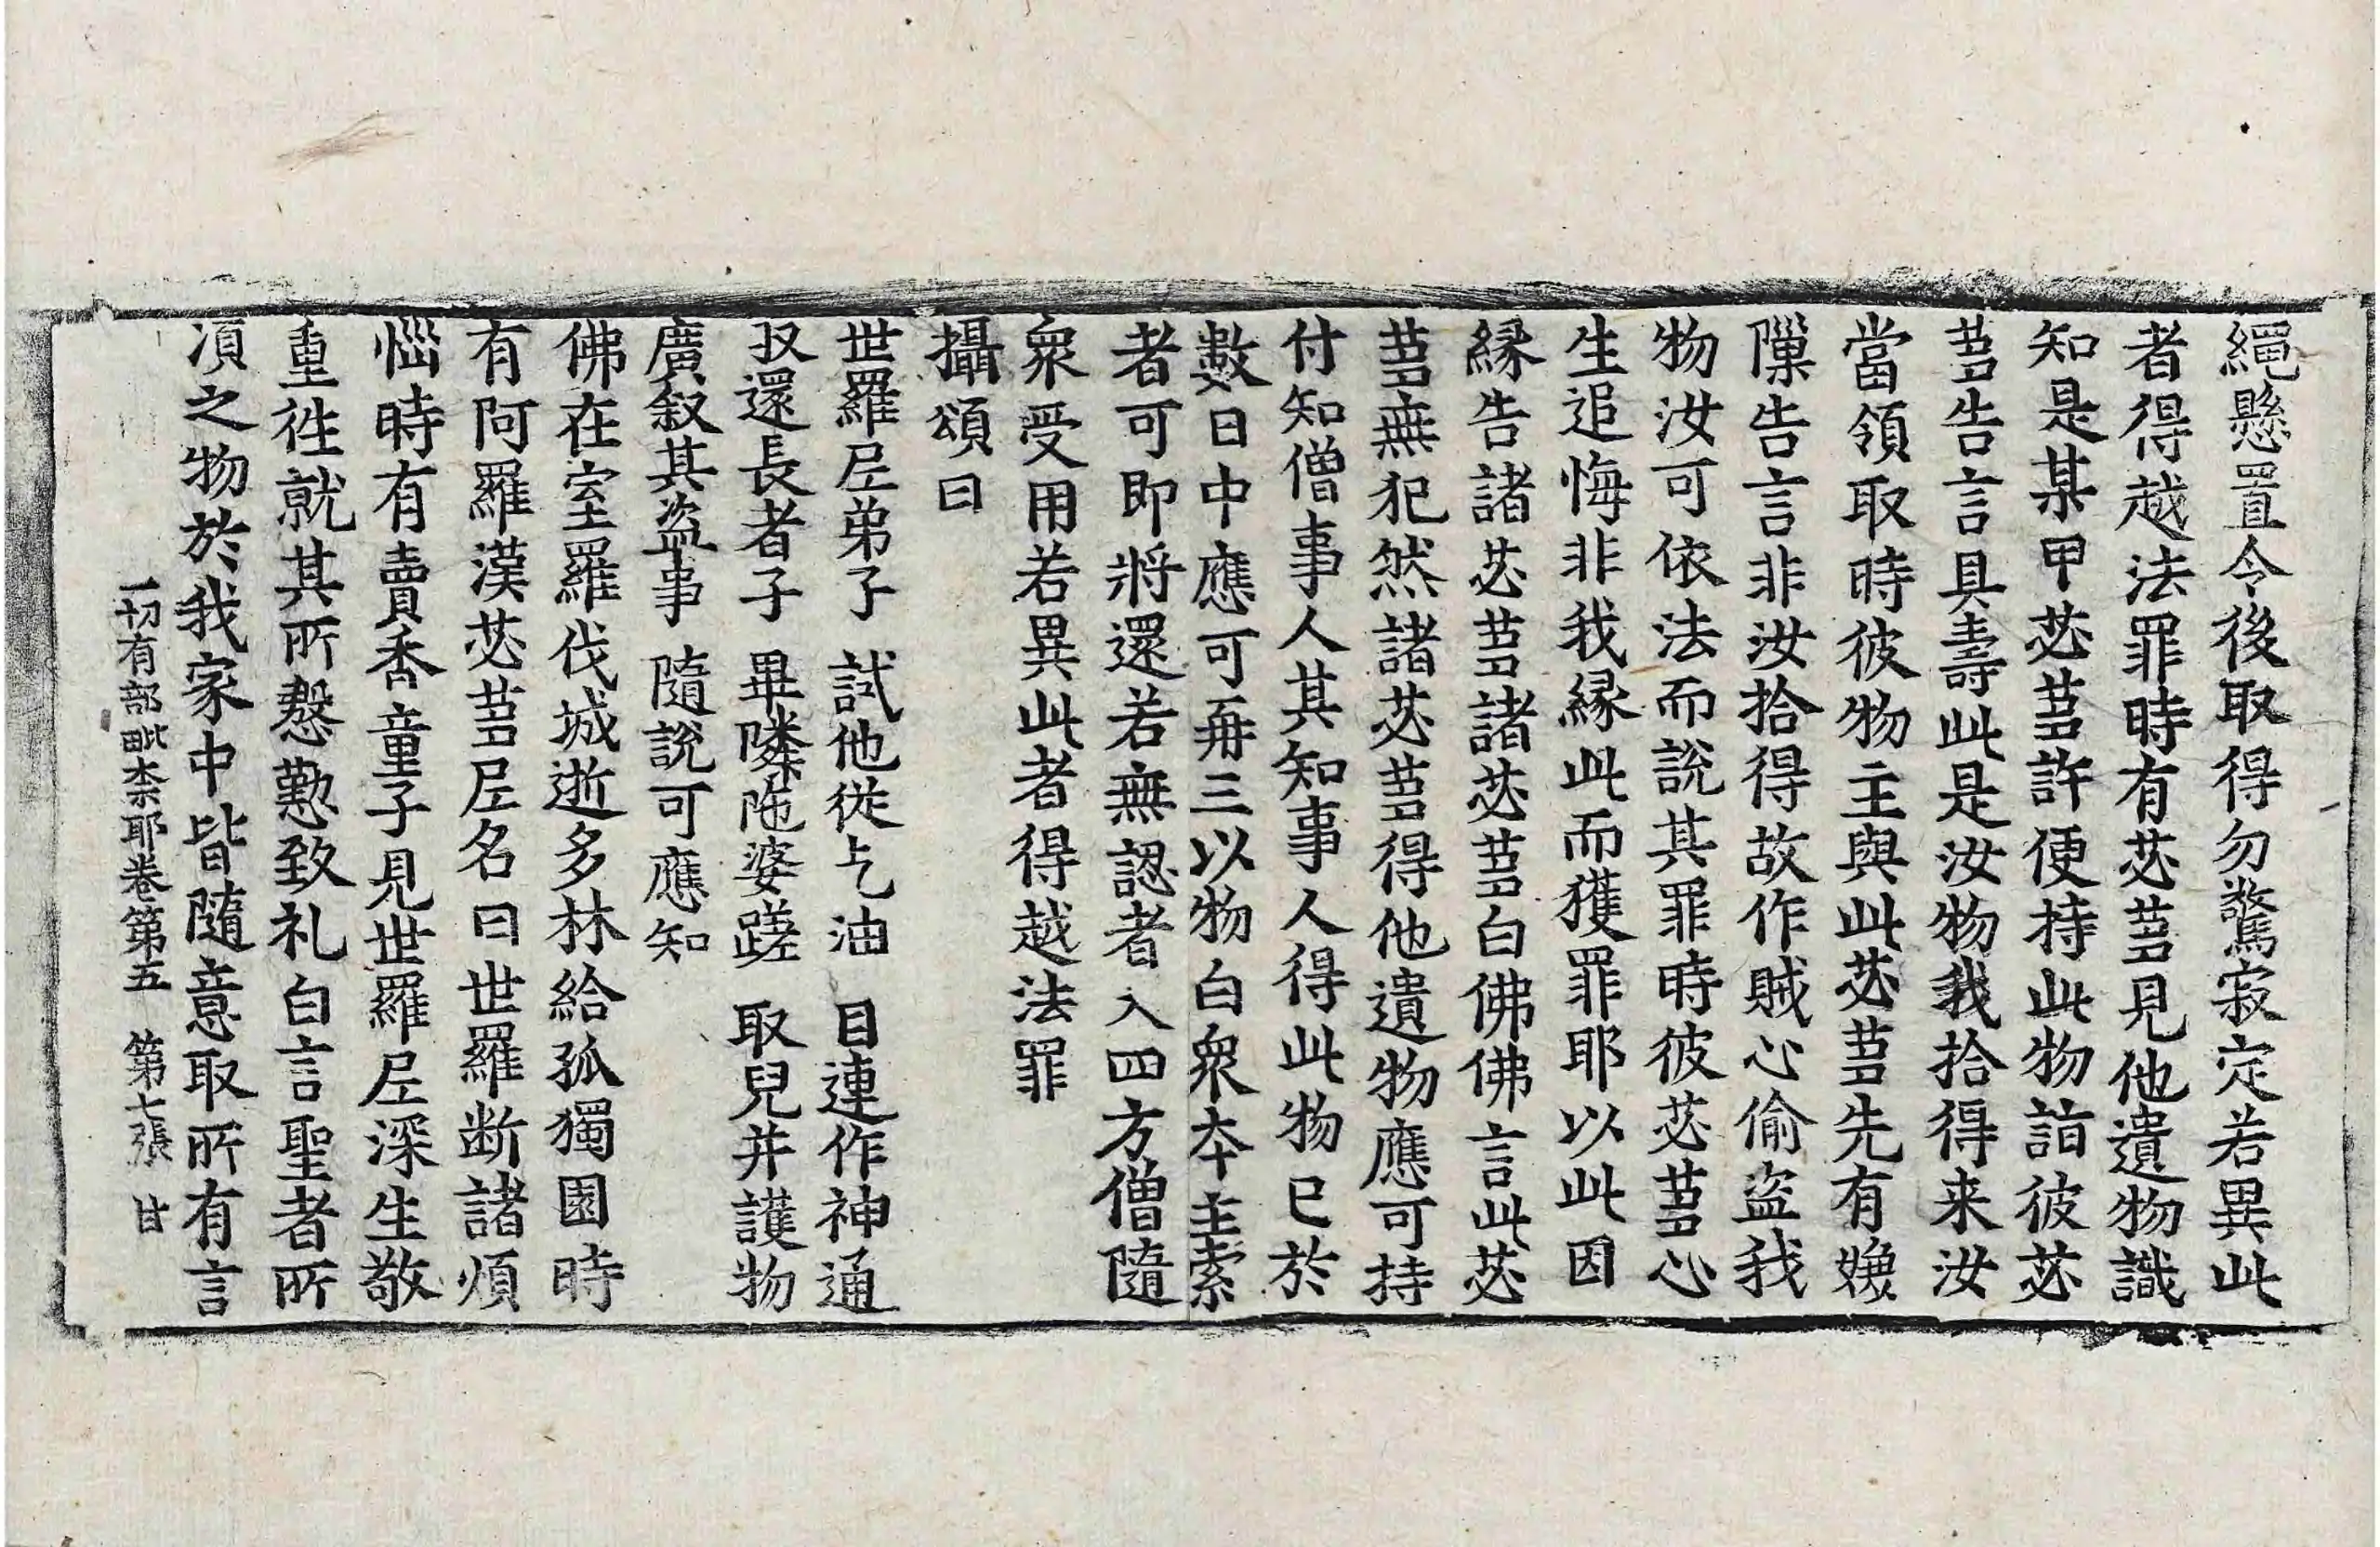 繩懸置令後取得勿驚寂定若異此
者得越法罪時有苾芻見他遺物識
知是某甲苾芻許便持此物詣彼苾
芻告言具壽此是汝物我拾得来汝
當領取時彼物主與此苾芻先有嫌
隟告言非汝拾得故作賊心偷盜我
物汝可依法而說其罪時彼苾芻心
生追悔非我縁此而獲罪耶以此因
縁告諸苾芻諸苾芻白佛佛言此苾
芻無犯然諸苾芻得他遺物應可持
付知僧事人其知事人得此物已於
數日中應可再三以物白衆夲主索
者可即將還若無認者入四方僧隨
衆受用若異此者得越法罪
攝頌曰
世羅尼弟子　試他從乞油　目連作神通
収還長者子　畢隣陁婆蹉　取兒并護物
廣叙其盜事　隨說可應知
佛在室羅伐城逝多林給孤獨園時
有阿羅漢苾芻尼名曰世羅断諸煩
惱時有賣香童子見世羅尼深生敬
重徃就其所慇懃致礼白言聖者所
湏之物於我家中皆隨意取所有言
一切有部毗柰耶卷第五　第七張　甘